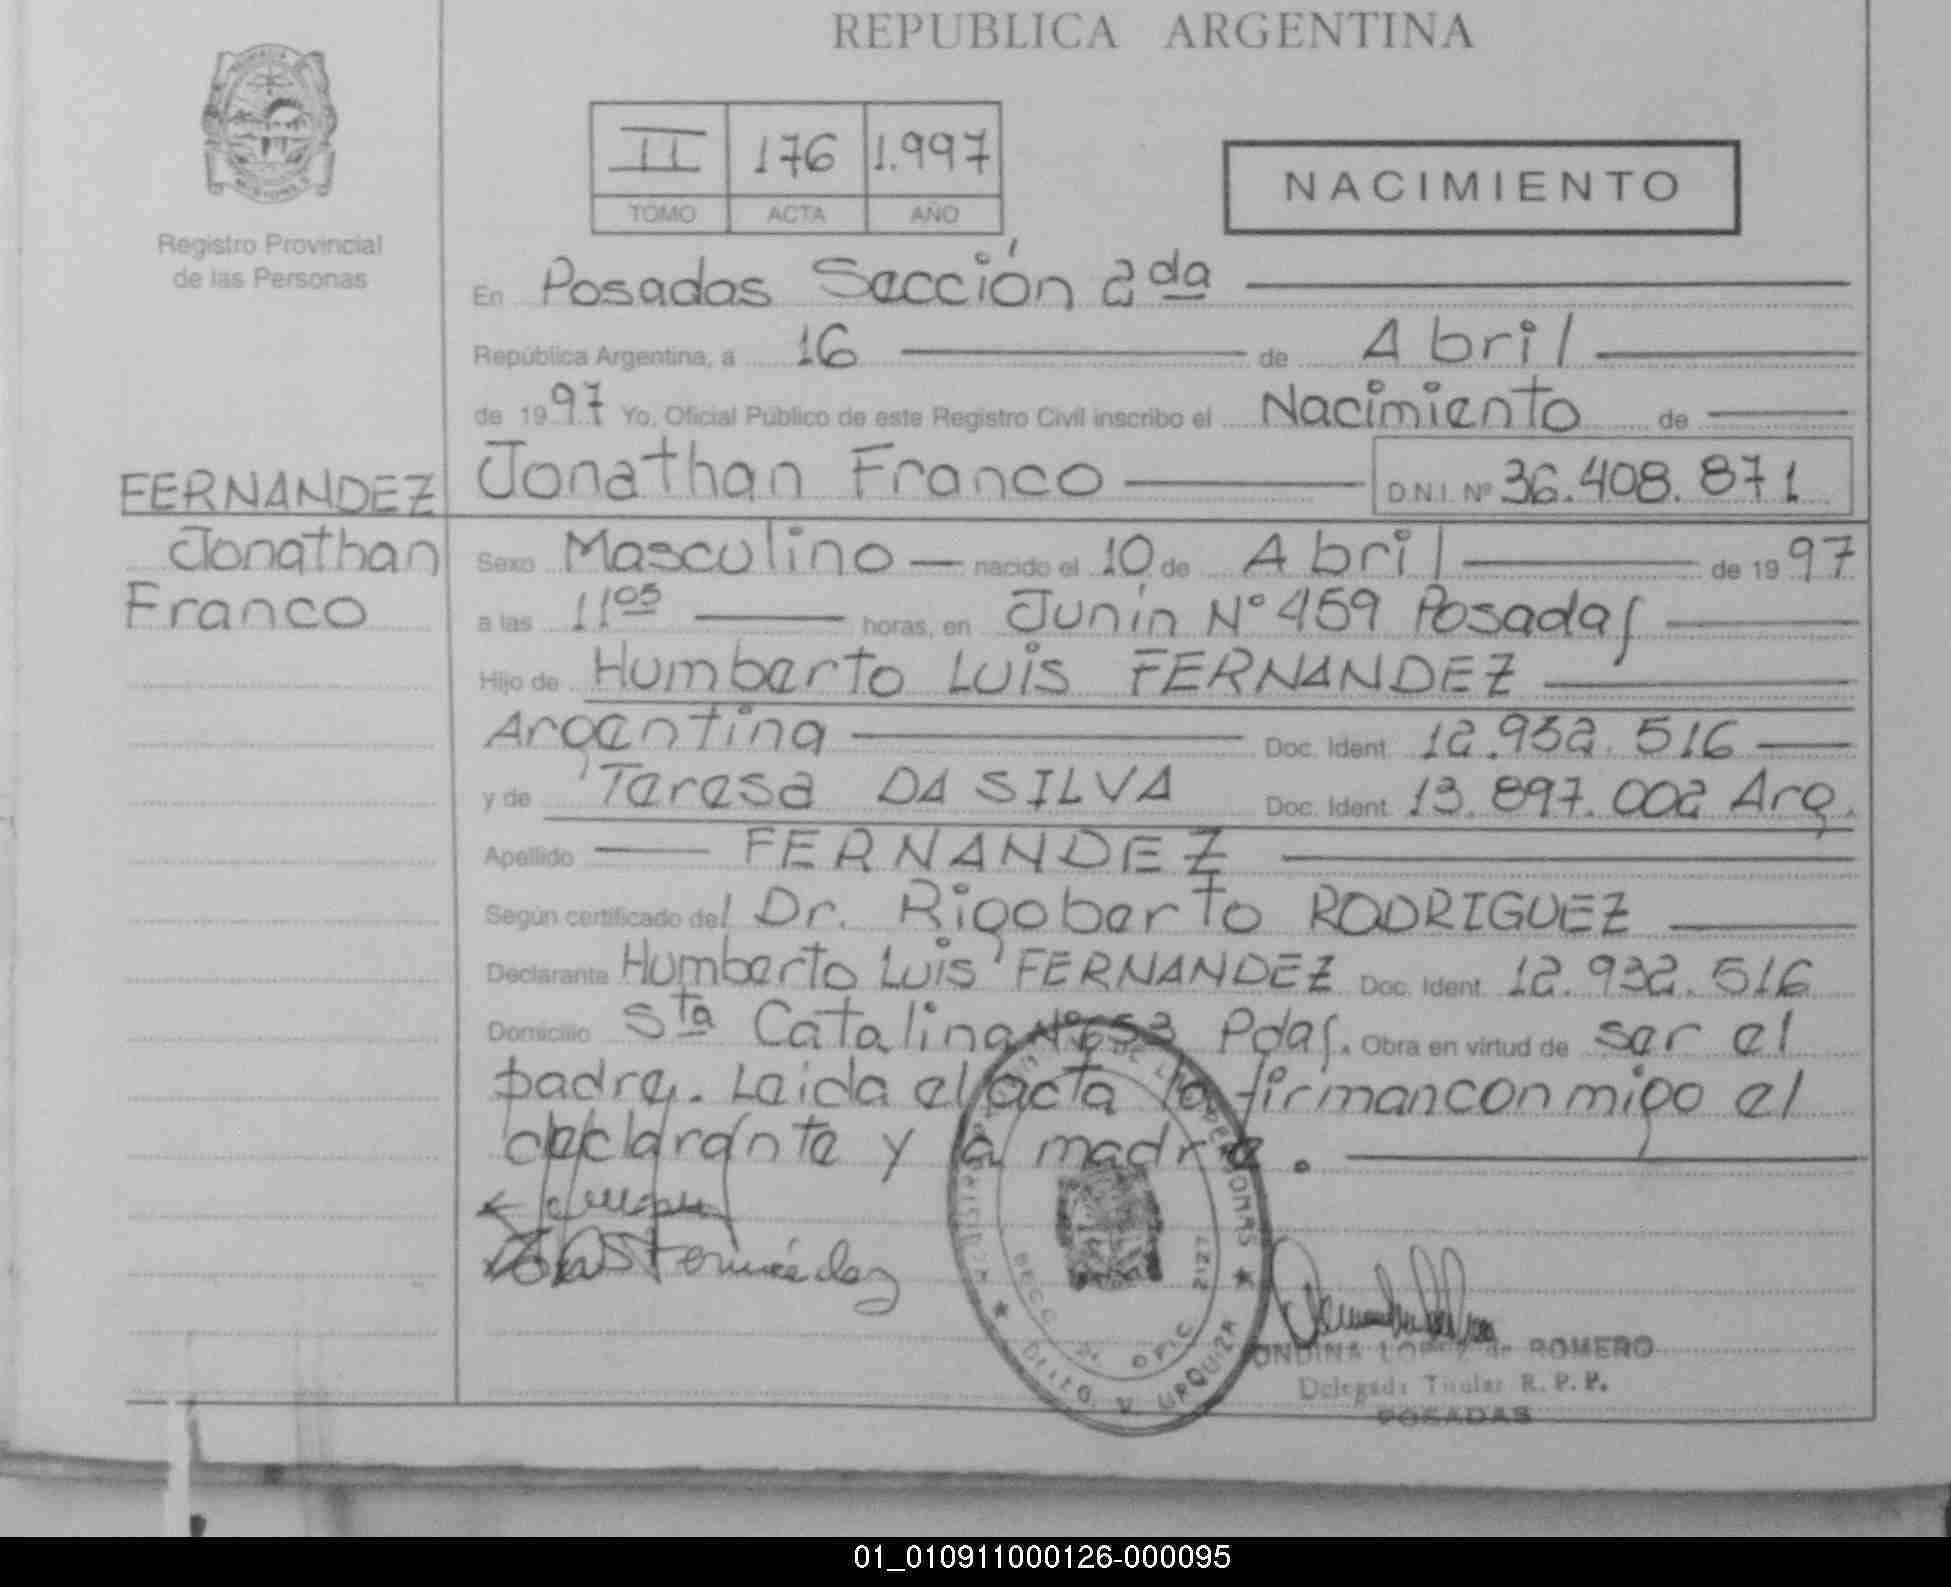 REPUBLICA ARGENTINA
II 176 1.997
TOMO ACTA AÑO
NACIMIENTO
MISIONES
Registro Provincial
de las Personas
En Posadas Sección 2da
República Argentina, a 16 de Abril
de 1997 Yo, Oficial Público de este Registro Civil inscribo el Nacimiento de
Jonathan Franco D.N.I. Nº 36.408.871
FERNANDEZ
Jonathan
Franco
Sexo Masculino nacido el 10 de Abril de 1997
a las 11 05 horas, en Junín Nº 459 Posadas
Hijo de Humberto Luis FERNANDEZ
Argentina Doc. Ident. 12.932.516
y de Teresa DA SILVA Doc. Ident. 13.897.002 Arg.
Apellido FERNANDEZ
Según certificado del Dr. Rigoberto RODRIGUEZ
Declarante Humberto Luis FERNANDEZ Doc. Ident. 12.932.516
Domicilio Sta Catalina Nº 653 Pdas. Obra en virtud de ser el
padre. Leida el acta la firman con migo el
declarante y la madre.
OFIC. 2127
DEPTO. V. URQUIZA
ONDINA LOPEZ de ROMERO
Delegada Titular R. P. P.
POSADAS
01_010911000126-000095